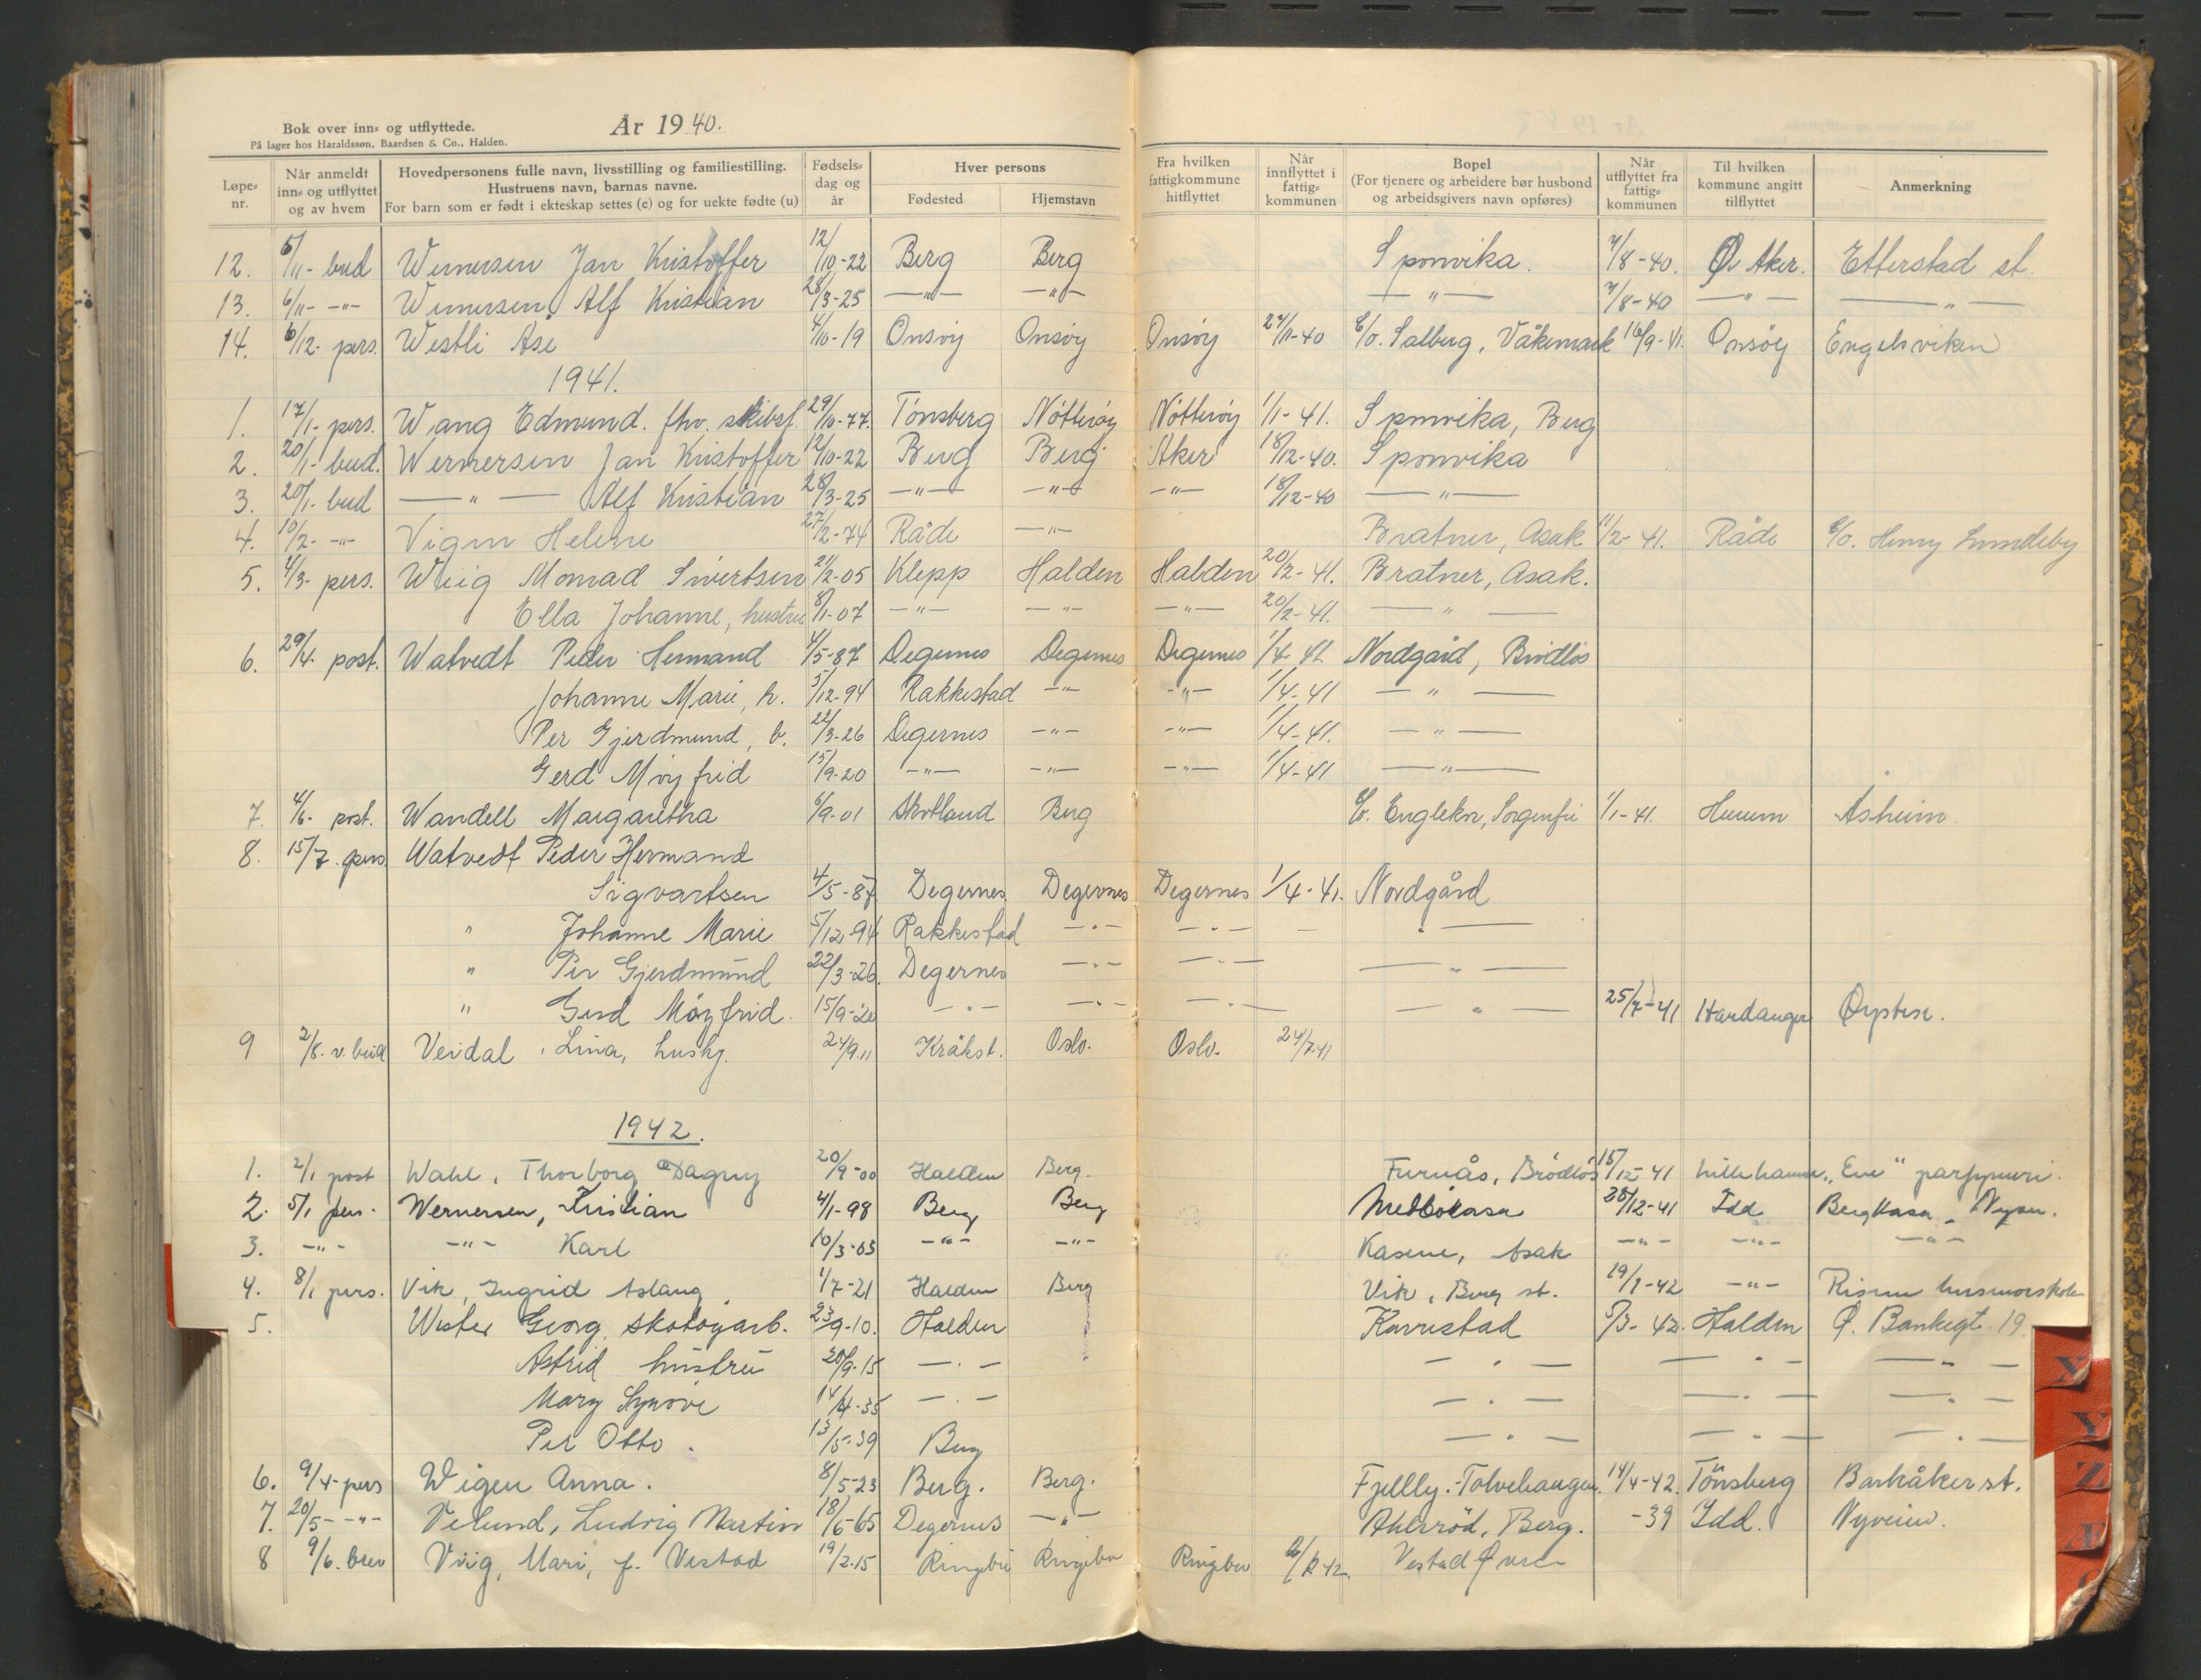 Bok over inn= og utflyttede.
År 1940.
På lager hos Haraldssøn, Baardsen & Co., Halden.
Løpe= nr. Når anmeldt inn= og utflyttet og av hvem Hovedpersonens fulle navn, livsstilling og familiestilling. Hustruens navn, barnas navne. For barn som er født i ekteskap settes (e) og for uekte fødte (u) Fødsels= dag og år Hver persons Fødested Hjemstavn Fra hvilken fattigkommune hitflyttet Når innflyttet i fattig= kommunen Bopel (For tjenere og arbeidere bør husbond og arbeidsgivers navn opføres) Når utflyttet fra fattig= kommunen Til hvilken kommune angitt tilflyttet Anmerkning
12. 6/11- bud Wernersen Jan Kristoffer 12/10-22 Berg Berg Sponvika. 7/8-40. Ø. Aker. Etterstad st.
13. 6/11- -"- Wernersen, Alf Kristian 28/3-25 -"- -"- -"- 7/8-40 -"- -"-
14. 6/12- pers. Westli Åse 4/10-19 Onsøy Onsøy Onsøy 27/11-40 c/o. Salberg, Våkemark 16/9-41. Onsøy Engelsviken
1941.
1. 17/1- pers. Wang Edmund. fhv. skibsf. 29/10-77. Tønsberg Nøtterøy Nøtterøy 1/1-41. Sponvika, Berg
2. 20/1- bud. Wernersen Jan Kristoffer 12/10-22 Berg Berg Aker 18/12-40. Sponvika
3. 20/1- bud -"- Alf Kristian 28/3-25 -"- -"- -"- 18/12-40 -"-
4. 10/2- -"- Vigen Helene 27/2-74 Råde -"- Bratner, Asak 11/2-41. Råde c/o. Henry Lundeby
5. 4/3- pers. Wiig Monrad Sivertsen 21/2-05 Klepp Halden Halden 20/2-41. Bratner, Asak.
Ella Johanne, hustru 8/1-07 -"- -"- -"- 20/2-41. -"-
6. 29/4- post. Watvedt Peder Hermand 4/5-87 Degernes Degernes Degernes 1/4-41 Nordgård, Brødløs
Johanne Marie, h. 5/12-94 Rakkestad -"- -"- 1/4-41 -"-
Per Gjerdmund, b. 22/3-26 Degernes -"- -"- 1/4-41. -"-
Gerd Møyfrid 15/9-20 -"- -"- -"- 1/4-41 -"-
7. 4/6- post. Wandell Margaretha 6/9-01 Skotland Berg c/o. Sorgenfri 1/1-41. Hurum Åsheim
8. 15/7. pers Watvedt Peder Hermand
Sigvartsen 4/5-87 Degernes Degernes Degernes 1/4-41. Nordgård
" Johanne Marie 5/12-94 Rakkestad -"- -"- - -"-
" Per Gjerdmund 22/3-26. Degernes -"- -"- -"-
" Gerd Møyfrid. 15/9-20 -"- -"- -"- -"- 25/7-41 Hardanger Øystese.
9 2/8. v. bud Veidal, Lina, hushj. 24/9.11 Kråkst. Oslo. Oslo. 24/7.41
1942.
1. 2/1 post Wahl, Thorborg Dagny 20/9-00 Halden Berg. Furnås, Brødløs 15/12-41 Lillehammer „Eva" parfymeri.
2. 5/1 pers. Wernersen, Kristian 4/1-98 Berg Berg 28/12-41 Idd Nyveien.
3. -"- -"- Karl 10/3-03 -"- -"- Kasene, Asak -"- -"- -"-
4. 8/1 pers. Vik, Ingrid Aslaug, 1/7-21 Halden Berg Vik, Berg st. 19/1-42 -"- Risum husmorskole
5. Wister Georg, skotøyarb. 23/9-10. Halden Karrestad 5/3-42. Halden Ø. Bankegt. 19.
Astrid hustru 20/9-15 -"- -"- -"- -"-
Mary Synøve 14/4-35 -"- -"- -"- -"-
Per Otto. 13/5-39 Berg -"- -"- -"-
6. 9/4- pers Wigen Anna. 8/5-23 Berg. Berg. Fjellly. Tolvehaugen. 14/4-42. Tönsberg Barkåker st.
7. 20/5- -"- Velund, Ludvig Martin 18/6-65 Degernes -"- Ahlsrød, Berg. -39 Idd. Nyveien.
8 9/6. brev Viig, Mari, f. Vestad 19/2.15 Ringebu Ringebu Ringebu Vestad
X
Y
Z
Æ